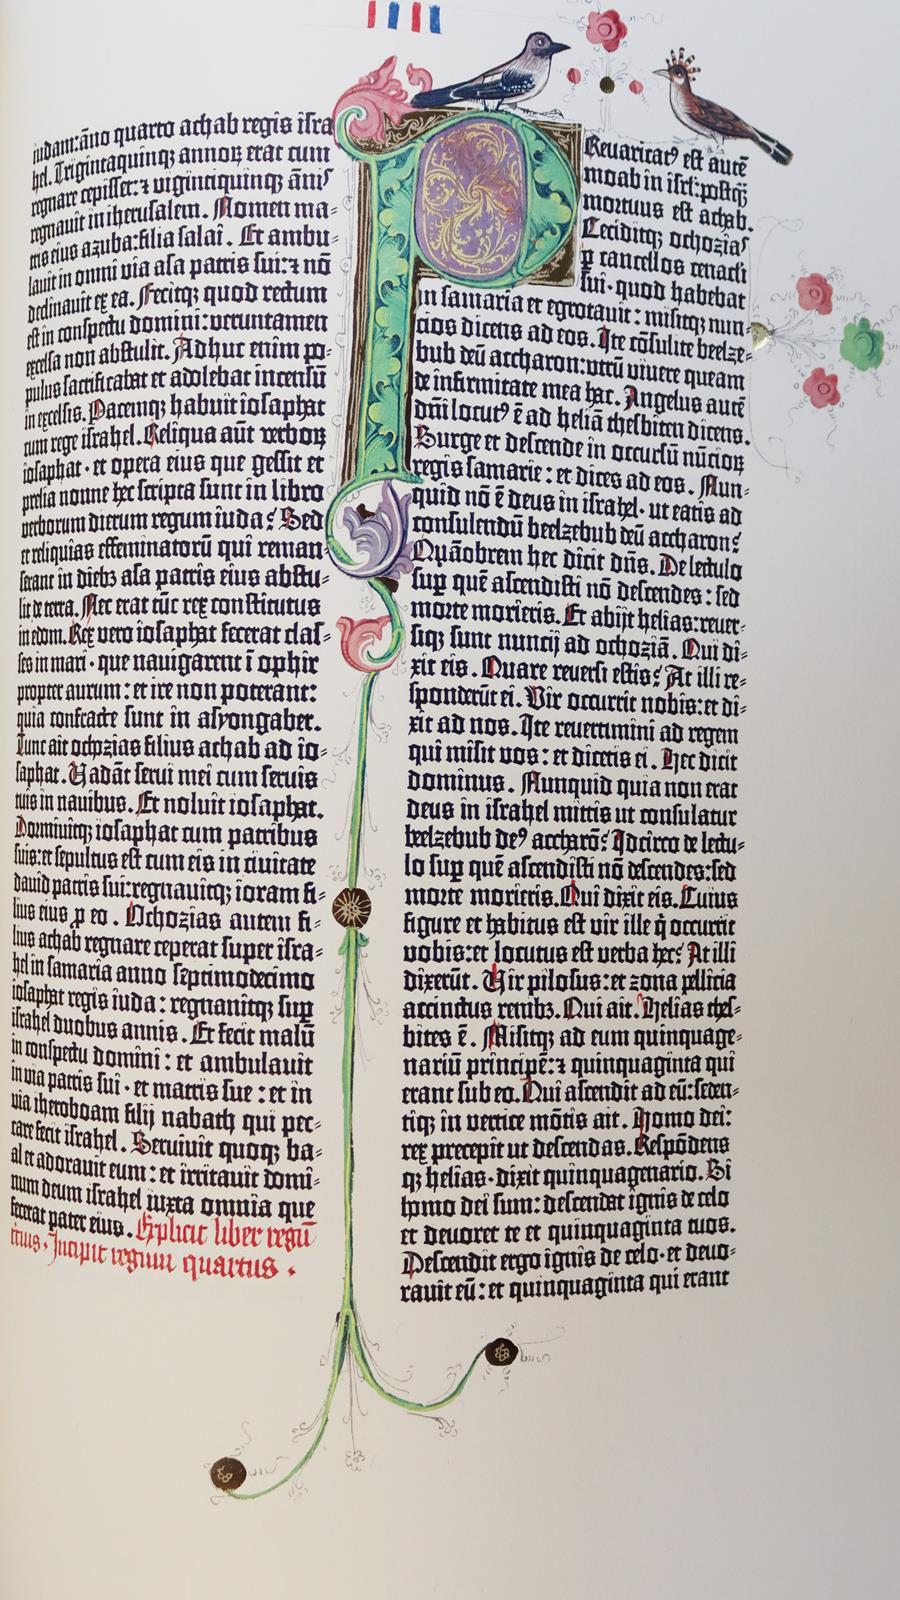 IIII
iudam: āno quarto achab regis isra
hel. Trigintaquinqꝫ annoꝝ erat cum
regnare cepisset: ⁊ vigintiquinqꝫ ānis
regnauit in iherusalem. Nomen ma⸗
tris eius azuba: filia salai. Et ambu⸗
lauit in omni via asa patris sui: ⁊ nō
declinauit ex ea. Fecitqꝫ quod rectum
est in conspectu domini: verumtamen
excelsa non abstulit. Adhuc enim po⸗
pulus sacrificabat et adolebat incensū
in excelsis. Pacemqꝫ habuit iosaphat
cum rege israhel. Reliqua aūt verboꝝ
iosaphat · et opera eius que gessit et
prelia nonne hec scripta sunt in libro
verborum dierum regum iuda? Sed
et reliquias effeminatorū qui reman⸗
serant in diebꝫ asa patris eius abstu⸗
lit de terra. Nec erat tūc rex constitutus
in edom. Rex vero iosaphat fecerat clas⸗
ses in mari · que nauigarent ī ophir
propter aurum: et ire non poterant:
quia confracte sunt in asyongaber.
Tunc ait ochozias filius achab ad io⸗
saphat. Vadāt serui mei cum seruis
tuis in nauibus. Et noluit iosaphat.
Dormiuitqꝫ iosaphat cum patribus
suis: et sepultus est cum eis in ciuitate
dauid patris sui: regnauitqꝫ ioram fi⸗
lius eius ꝑ eo. Ochozias autem fi⸗
lius achab regnare ceperat super isra⸗
hel in samaria anno septimodecimo
iosaphat regis iuda: regnauitqꝫ suꝑ
israhel duobus annis. Et fecit malū
in conspectu domini: et ambulauit
in via patris sui · et matris sue: et in
via iheroboam filij nabath qui pec⸗
care fecit israhel. Seruiuit quoqꝫ ba⸗
al et adorauit eum: et irritauit domi⸗
num deum israhel iuxta omnia que
fecerat pater eius. Explicit liber regū
tcius. Incipit regum quartus.
PReuaricatꝰ est autē
moab in isrl: postqꝫ
mortuus est achab.
Ceciditqꝫ ochozias
ꝑ cancellos cenacli
sui · quod habebat
in samaria et egrotauit: misitqꝫ nun⸗
cios dicens ad eos. Ite cōsulite beelze⸗
bub deū accharon: vtrū viuere queam
de infirmitate mea hac. Angelus autē
dn̄i locutꝰ ē ad heliā thesbiten dicens.
Surge et descende in occursū nūcioꝝ
regis samarie: et dices ad eos. Nun⸗
quid nō ē deus in israhel · ut eatis ad
consulendū beelzebub deū accharon?
Quāobrem hec dicit dn̄s. De lectulo
suꝑ quē ascendisti nō descendes: sed
morte morieris. Et abijt helias: reuer⸗
siqꝫ sunt nuncij ad ochoziā. Qui di⸗
xit eis. Quare reuersi estis? At illi re⸗
sponderūt ei. Vir occurrit nobis: et di⸗
xit ad nos. Ite reuertimini ad regem
qui misit vos: et dicetis ei. Hec dicit
dominus. Nunquid quia non erat
deus in israhel mittis ut consulatur
beelzebub deꝰ accharō? Idcirco de lectu⸗
lo suꝑ quē ascendisti nō descendes: sed
morte morieris. Qui dixit eis. Cuius
figure et habitus est vir ille q̇ occurrit
vobis: et locutus est verba hec? At illi
dixerūt. Vir pilosus: et zona pellicia
accinctus renibꝫ. Qui ait. Helias thes⸗
bites ē. Misitqꝫ ad eum quinquage⸗
nariū principē: ⁊ quinquaginta qui
erant sub eo. Qui ascendit ad eū: seden⸗
tiqꝫ in vertice mōtis ait. Homo dei:
rex precepit ut descendas. Respōdens
qꝫ helias · dixit quinquagenario. Si
homo dei sum: descendat ignis de celo
et deuoret te et quinquaginta tuos.
Descendit ergo ignis de celo · et deuo⸗
rauit eū: et quinquaginta qui erant